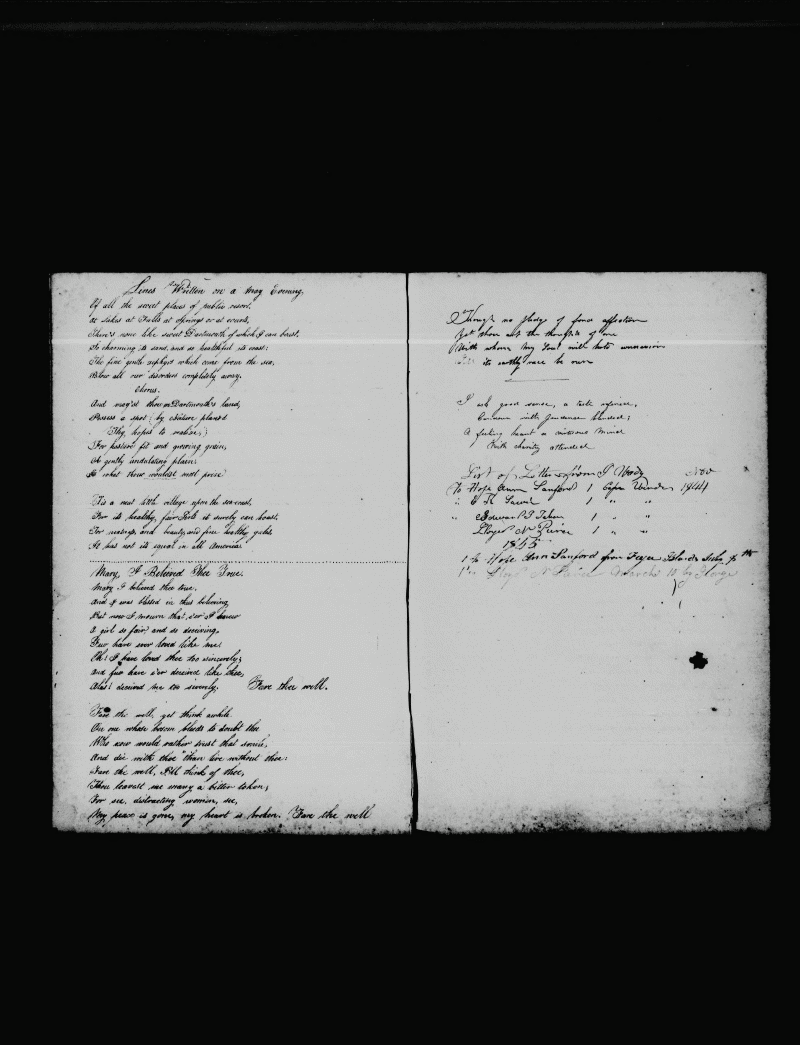 Lines Written on a May Evening,
Of all the sweet places of public resort,
at lakes at Falls at springs or at courts,
There's none like sweet Dartmouth of which I can boast,
So charming its sand, and so healthful its coast:
The fine gentle zephyrs which come from the sea,
Blow all our disorders completely away.
Chorus.
And may'st thou on Dartmouth's land,
Possess a spot; by nature plan'd
Thy hopes to realise;
For pasture fit and growing grain,
A gently undulating plain
Is what thou wouldst most prize
Tis a neat little village upon the sea-coast,
For its healthy, fair Girls it surely can boast,
For neatness, and beauty, and fine healthy girls
It has not its equal in all America
Mary, I Believed Thee True.
Mary I believed thee true,
And I was blessed in thus believing
But now I mourn that, e'er I knew
A girl so fair and so deceiving.
Few have ever loved like me:
Oh! I have loved thee too sincerely;
And few have e'er deceived like thee,
Alas! deceived me too severely. Fare thee well.
Fare the well, yet think awhile
On one whose bosom bleeds to doubt thee
Who now would rather trust that smile,
And die with thee than live without thee:
Fare the well, I'll think of thee,
Thou leavest me many a bitter token;
For see, distracting woman, see,
My peace is gone, my heart is broken. Fare the well
Though no pledge of fond affection
Yet thou art the thought of one
With whom my soul
its earthly race be run
I ask good sense, a taste refined,
with prudence blended;
A feeling heart a virtuous mind
With charity attended
List of Letters from Nov
To Hope Ann Sanford 1 Cape 1844
" 1 " "
" Edward S 1 " "
Lloyd N 1 " "
1845
1 To Hope Ann Sanford from Islands
1 " Lloyd N March 10 by George